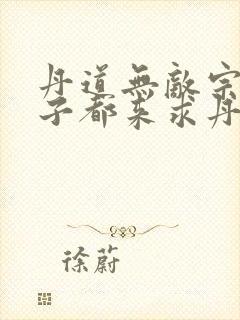 丹道無敵宗
子都來求丹
徐蔚